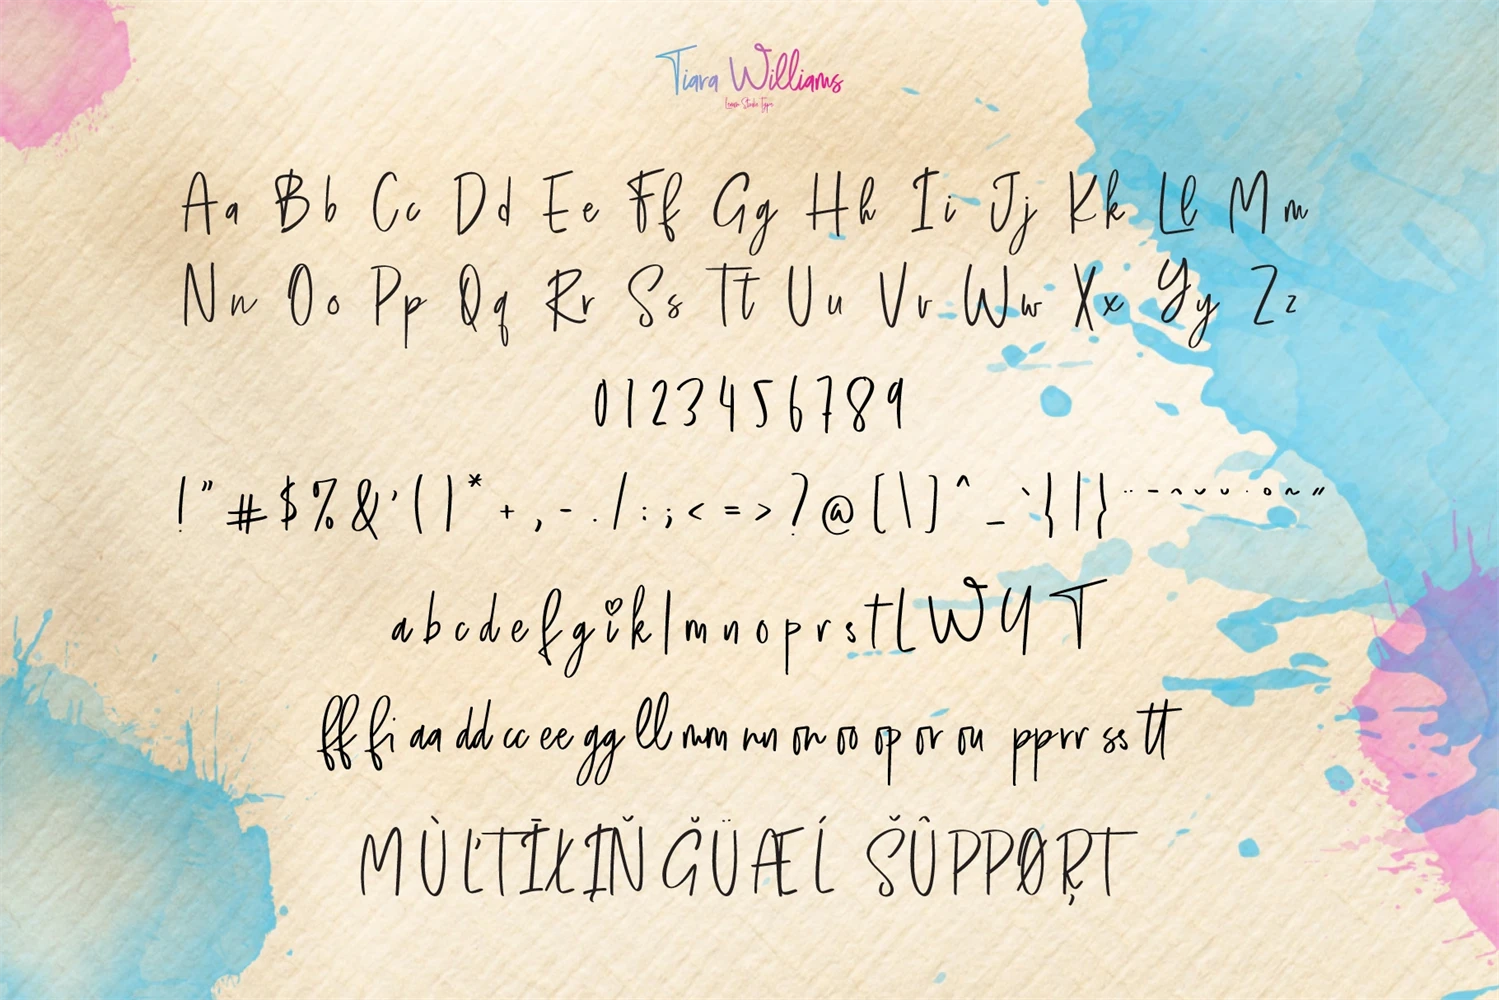 Tiara Williams
Aa Bb Cc Dd Ee Ff Gg Hh Ii Jj Kk Ll Mm
Nn Oo Pp Qq Rr Ss Tt Uu Vv Ww Xx Yy Zz
0 1 2 3 4 5 6 7 8 9
! " # $ % & ' ( ) * + , - . / : ; < = > ? @ [ \ ] ^ _ ` { | } ¨ ¯ ^ ˘ ˘ ˙ ° ~ ˝
a b c d e f g i k l m n o p r s t L W Y T
ff fi aa dd cc ee gg ll mm nn on oo op or ou pp rr ss tt
MÙĽTĪĿĮŇĞÜÆĹ ŠÛPPØŖT